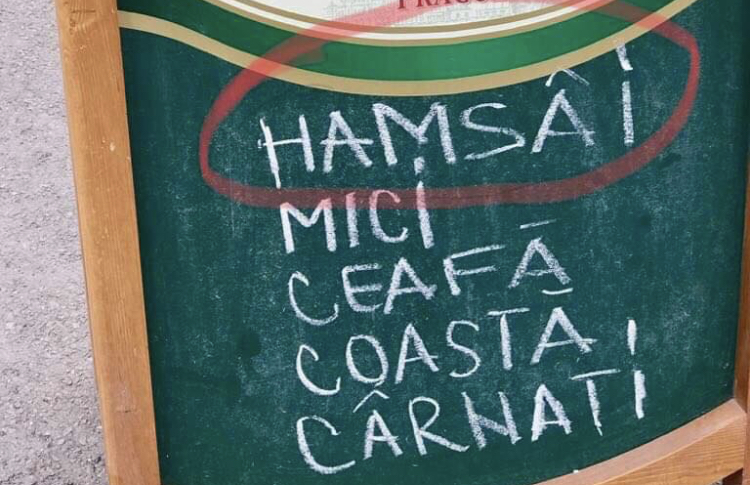 HAMSÂI
MICI
CEAFĂ
COASTĂ
CÂRNATI